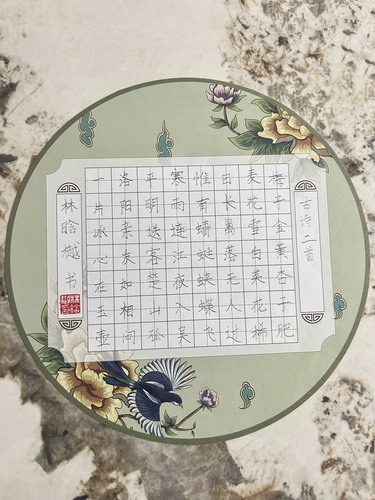 古诗二首
梅子金黄杏子肥
麦花雪白菜花稀
日长篱落无人过
惟有蜻蜓蛱蝶飞
寒雨连江夜入吴
平明送客楚山孤
洛阳亲友如相问
一片冰心在玉壶
林晗樾书